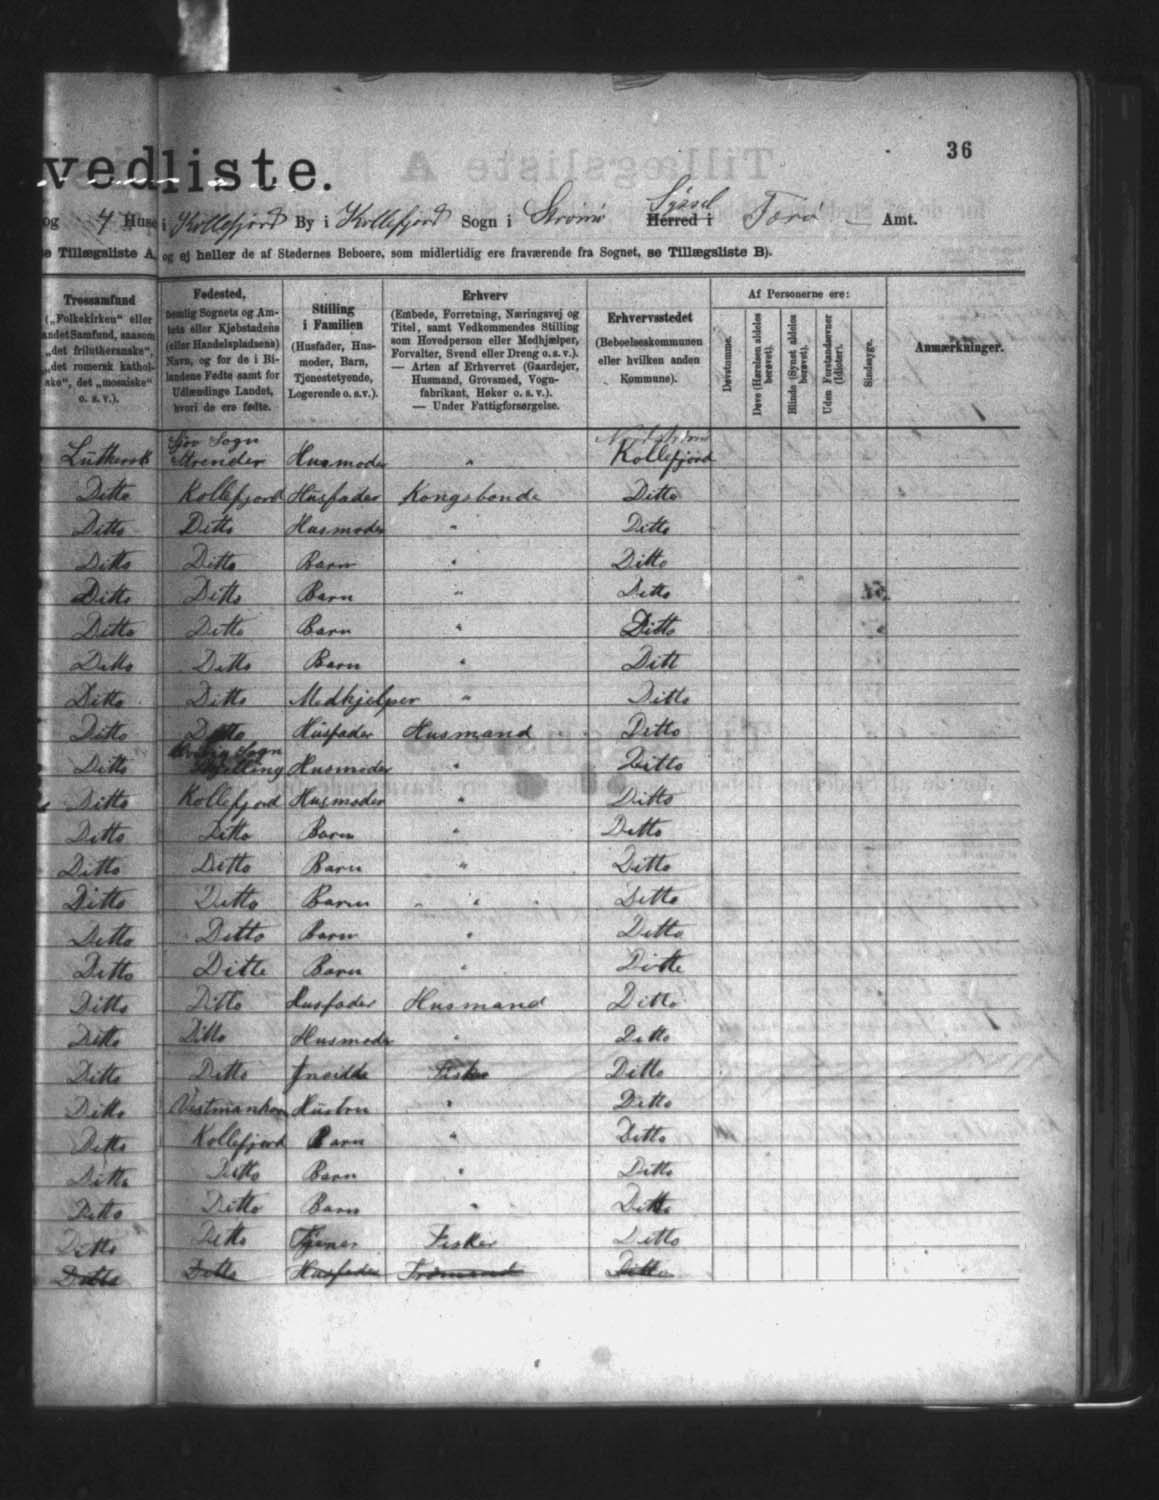 36
vedliste.
og 4 Huse i Kollefjord By i Kollefjord Sogn i Strømø Syssel Herred i Færø Amt.
e Tillægsliste A og ej heller de af Stedernes Beboere, som midlertidig ere fraværende fra Sognet, se Tillægsliste B).
Trossamfund
(„Folkekirken“ eller
andet Samfund, saasom
„det frilutheranske“,
„det romersk kathol-
ske“, det „mosaiske“
o. s. v.).
Fødested,
nemlig Sognets og Am-
tets eller Kjøbstadens
(eller Handelspladsens)
Navn, og for de i Bi-
landene Fødte samt for
Udlændinge Landet,
hvori de ere fødte.
Stilling
i Familien
(Husfader, Hus-
moder, Barn,
Tjenestetyende,
Logerende o. s. v.).
Erhverv
(Embede, Forretning, Næringsvej og
Titel, samt Vedkommendes Stilling
som Hovedperson eller Medhjælper,
Forvalter, Svend eller Dreng o. s. v.).
— Arten af Erhvervet (Gaardejer,
Husmand, Grovsmed, Vogn-
fabrikant, Høker o. s. v.).
— Under Fattigforsørgelse.
Erhvervsstedet
(Beboelseskommunen
eller hvilken anden
Kommune).
Af Personerne ere:
Døvstumme.
Døve (Hørelsen aldeles
berøvet).
Blinde (Synet aldeles
berøvet).
Uden Forstandsevner
(Idioter).
Sindssyge.
Anmærkninger.
Sogn
Strender Husmoder " Kollefjord
Ditto Kollefjord Husfader Kongsbonde Ditto
Ditto Ditto Husmoder " Ditto
Ditto Ditto Barn " Ditto
Ditto Ditto Barn " Ditto
Ditto Ditto Barn " Ditto
Ditto Ditto Barn " Ditt
Ditto Ditto Medhjelper " Ditto
Ditto Ditto Husfader Husmand Ditto
Sogn
Ditto Husmoder " Ditto
Ditto Kollefjord Husmoder " Ditto
Ditto Ditto Barn " Ditto
Ditto Ditto Barn " Ditto
Ditto Ditto Barn " Ditto
Ditto Ditto Barn " Ditto
Ditto Ditto Barn " Ditto
Ditto Ditto Husfader Husmand Ditto
Ditto Ditto Husmoder " Ditto
Ditto Ditto Fisker Ditto
Ditto Vestmanhavn Hustru " Ditto
Ditto Kollefjord Barn " Ditto
Ditto Ditto Barn " Ditto
Ditto Ditto Barn " Ditto
Ditto Ditto Tjener Fisker Ditto
Ditto Ditto Husfader Ditto